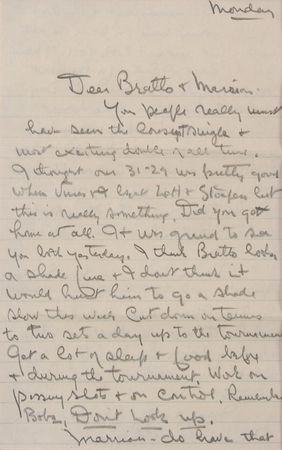 Monday
Dear Bratto & Marrion -
You people really must
have seen the longest single &
most exciting double of all time.
I thought our 31-29 was pretty good
when Vines & I beat Lott & Stoefen but
this is really something. Did you get
home at all. It was grand to see
you both yesterday. I think Bratto looks
a shade fine & I don't think it
would hurt him to go a shade
slow this week. Cut down on tennis
to two sets a day up to the tournament
Get a lot of sleep & food before
& during the tournament. Work on
passing shots & on control. Remember
Bobz, Don't Look up.
Marrion - do have that